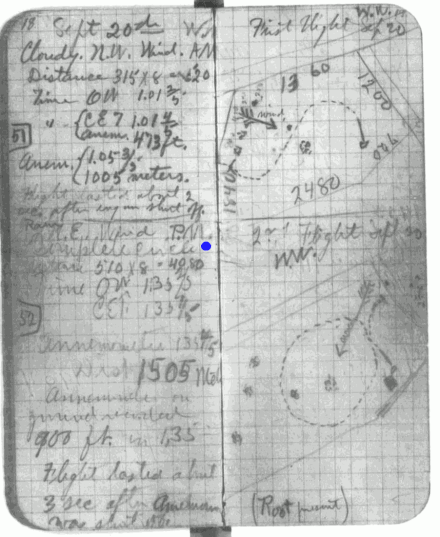 18 Sept 20th W.
Cloudy. N.W. Wind. AM
Distance 315 X 8 =
Time OW 1.01 3/5
" { C.E.T 1.01 4/5
anem. 473 ft.
51
Anem. { 1.05 3/5
1005 meters.
Flight lasted about 2
sec. after engine shut off.
N.E. Wind P.M.
complete circle
Distance 510 X 8 = 4080
Time OW 1 35 1/5
C.E.T. 1 35
52
Annemometer 1 35 4/5
Dist 1505 Met
Annemometer on
ground recorded
900 ft. in 1.35
Flight lasted about
3 sec after Anemom
was shut off.
First Flight Sep 20
W.W.
13 60
1200
wind
940
2480
1840
2nd Flight Sept 20
W.W.
wind
(Root present)